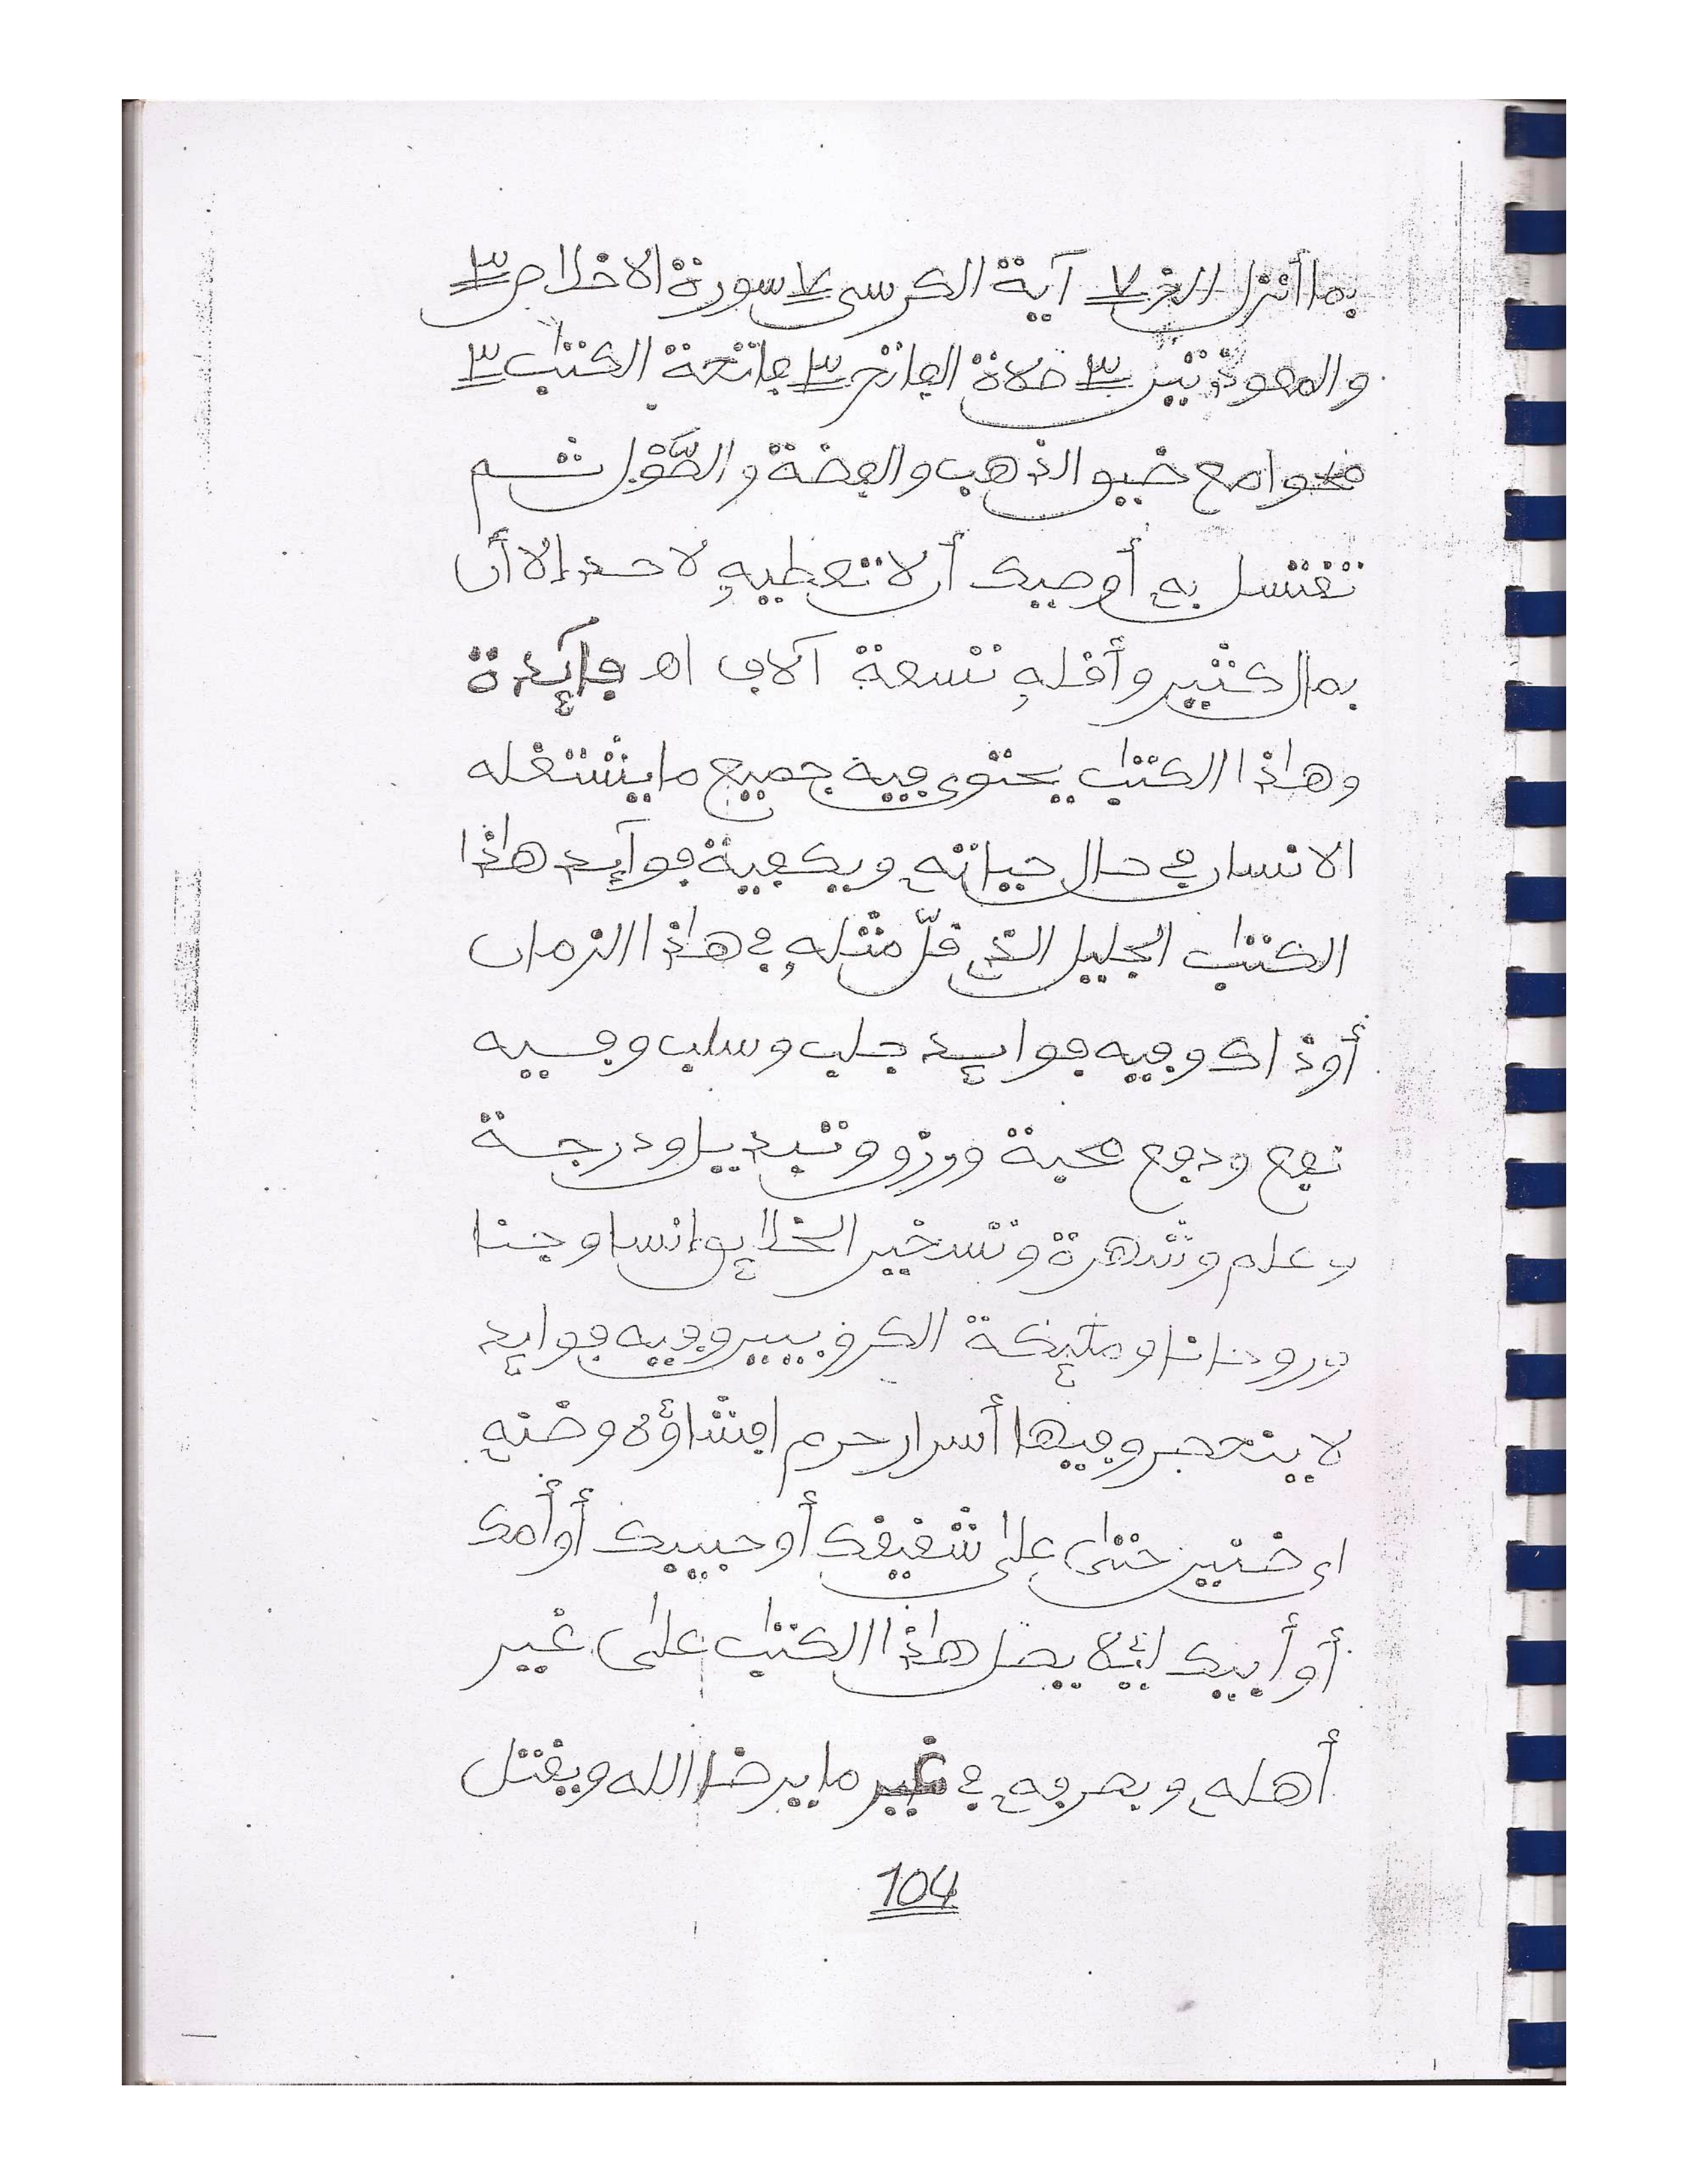 بما أنزل الخ ٧ آية الكرسى ٧ سورة الاخلاص ٣
والمعوذتين ٣ صلاة الفاتح ٣ فاتحة الكتٰب ٣
مع ضيو الذهب والفضة والطّوْل ثم
تغتسل به أوصيك أن لا تعطيه لاحد إلا أن
بمال كثير وأقله تسعة آلاف اه فآئدة
وهٰذا الكتٰب يحتوى فيه جميع ما يشتغله
الانسان في حال حياته ويكفيه فوآئد هٰذا
الكتٰب الجليل الذي قلّ مثله في هٰذا الزمان
أو ذاك وفيه فوائد جلب وسلب وفيه
نفع ودفع محبة ورزق وتبديل ودرجة
وعلم وشهرة وتسخير الخلائق إنسا وجنا
وروحانا وملٰئكة الكروبيين وفيه فوائد
لا ينحصر وفيها أسرار حرم افشاؤه وضنه
اى ضنين حتىٰ علىٰ شقيقك أو حبيبك أو أمك
أو أبيك لئلا يصل هٰذا الكتٰب علىٰ غير
أهله ويصرفه في غير ما يرضا الله ويقتل
104